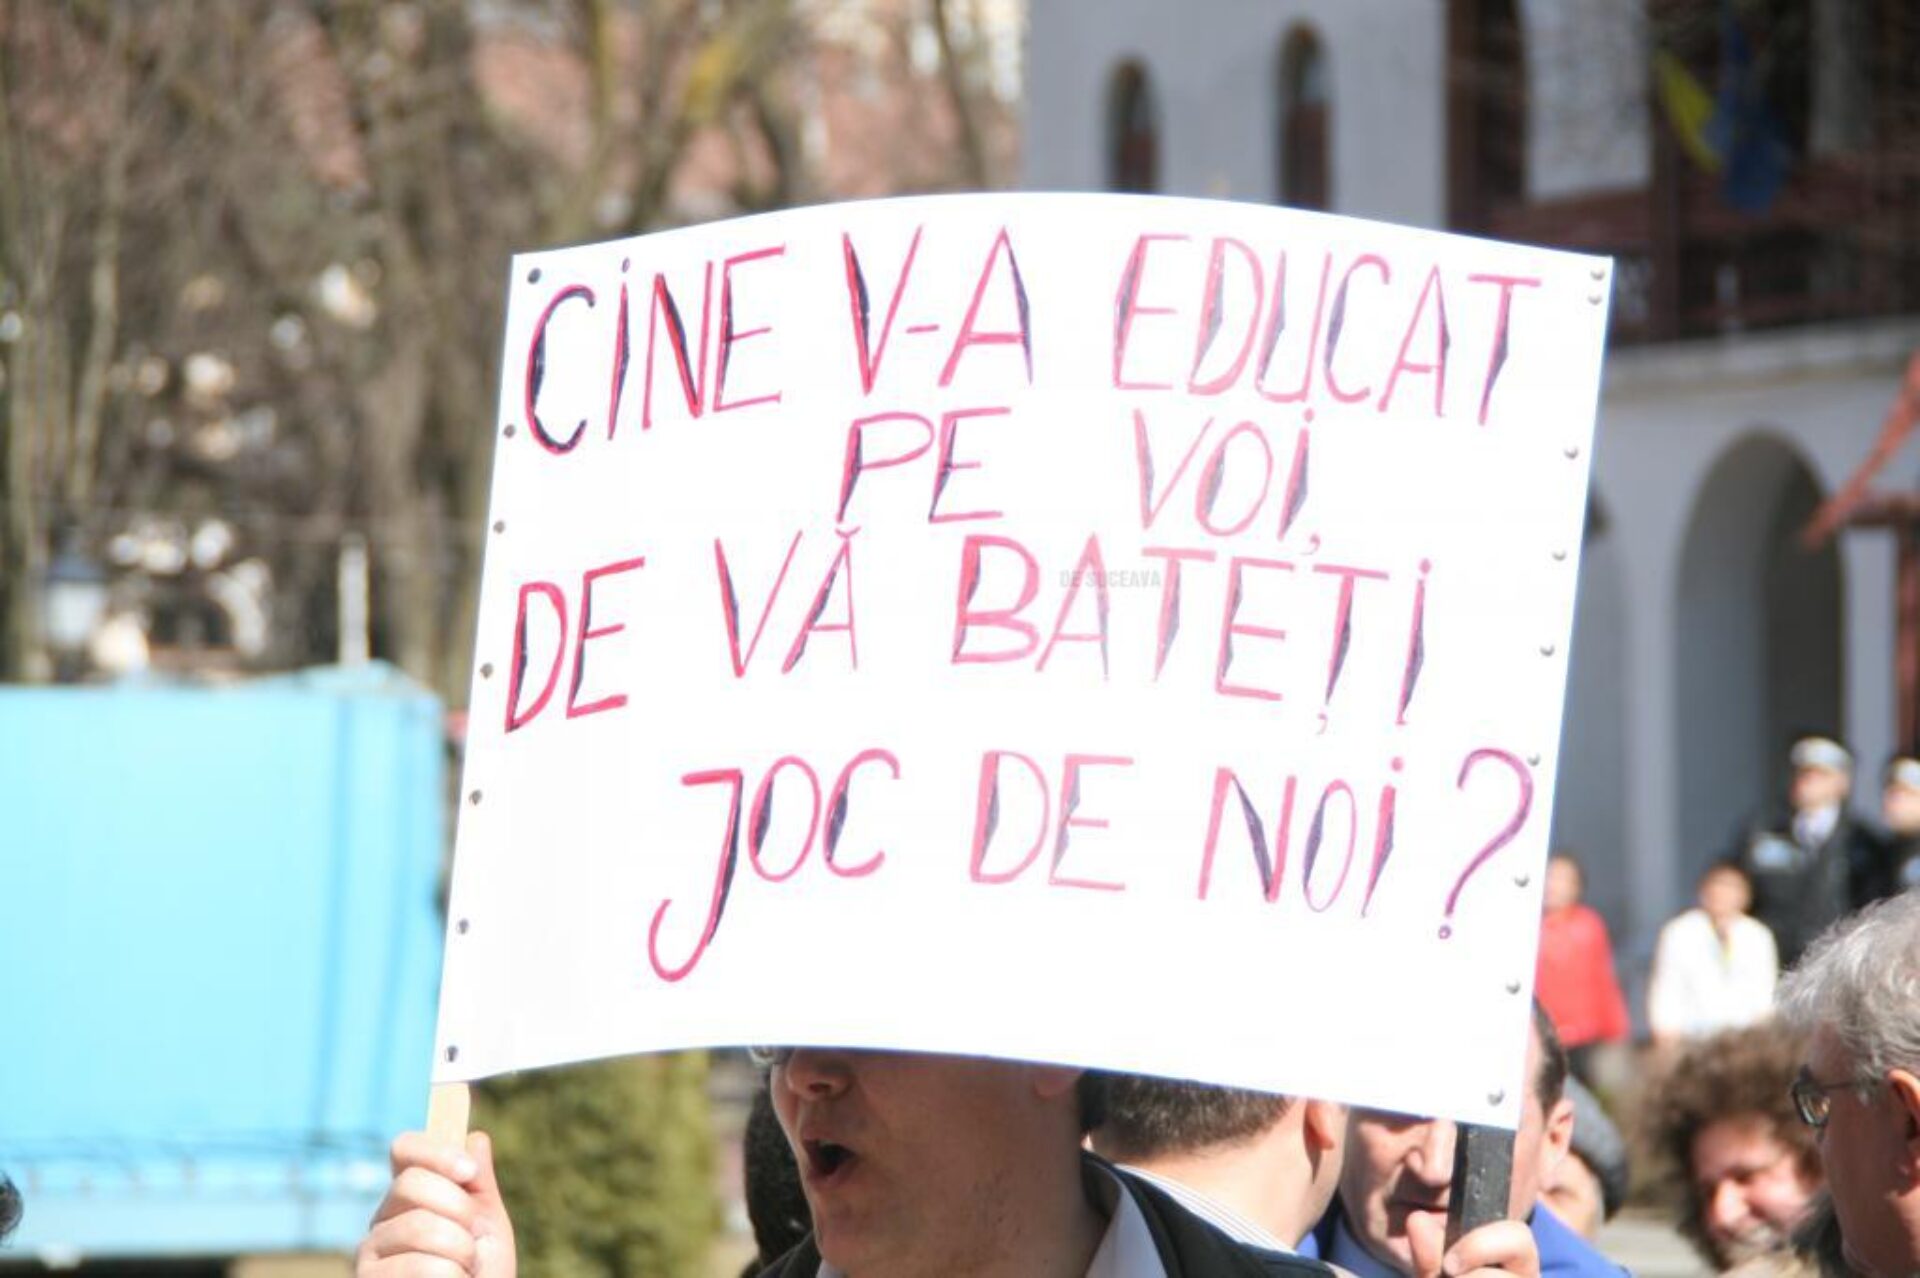 CINE V-A EDUCAT
PE VOI,
DE VĂ BATEȚI
JOC DE NOI ?
DE SUCEAVA